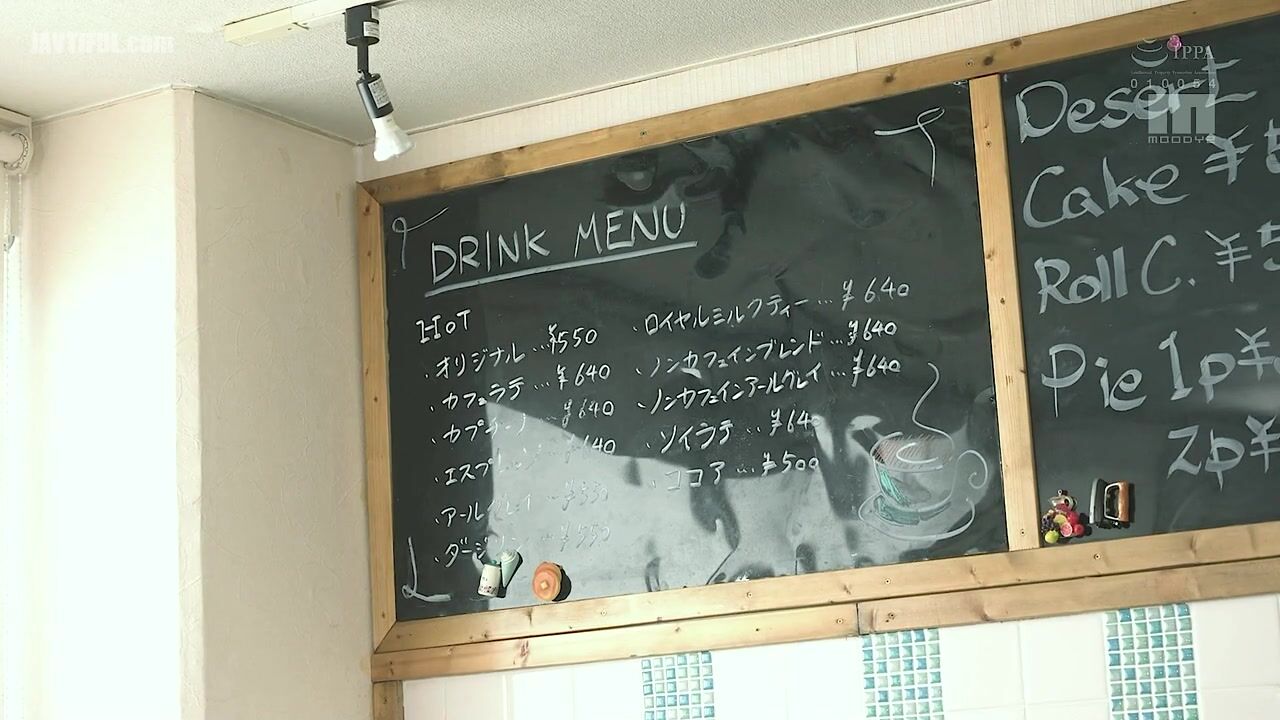 JAVTIFUL.com
IPPA
010054
MOODYZ
DRINK MENU
HOT
・オリジナル…¥550
・カフェラテ…¥640
・カプチーノ…¥640
・エスプレッソ…¥640
・アールグレイ…¥550
・ダージリン…¥550
・ロイヤルミルクティー…¥640
・ノンカフェインブレンド…¥640
・ノンカフェインアールグレイ…¥640
・ソイラテ…¥640
・ココア…¥500
Desert
Cake ¥5
Roll C. ¥5
Pie 1p¥
2p¥